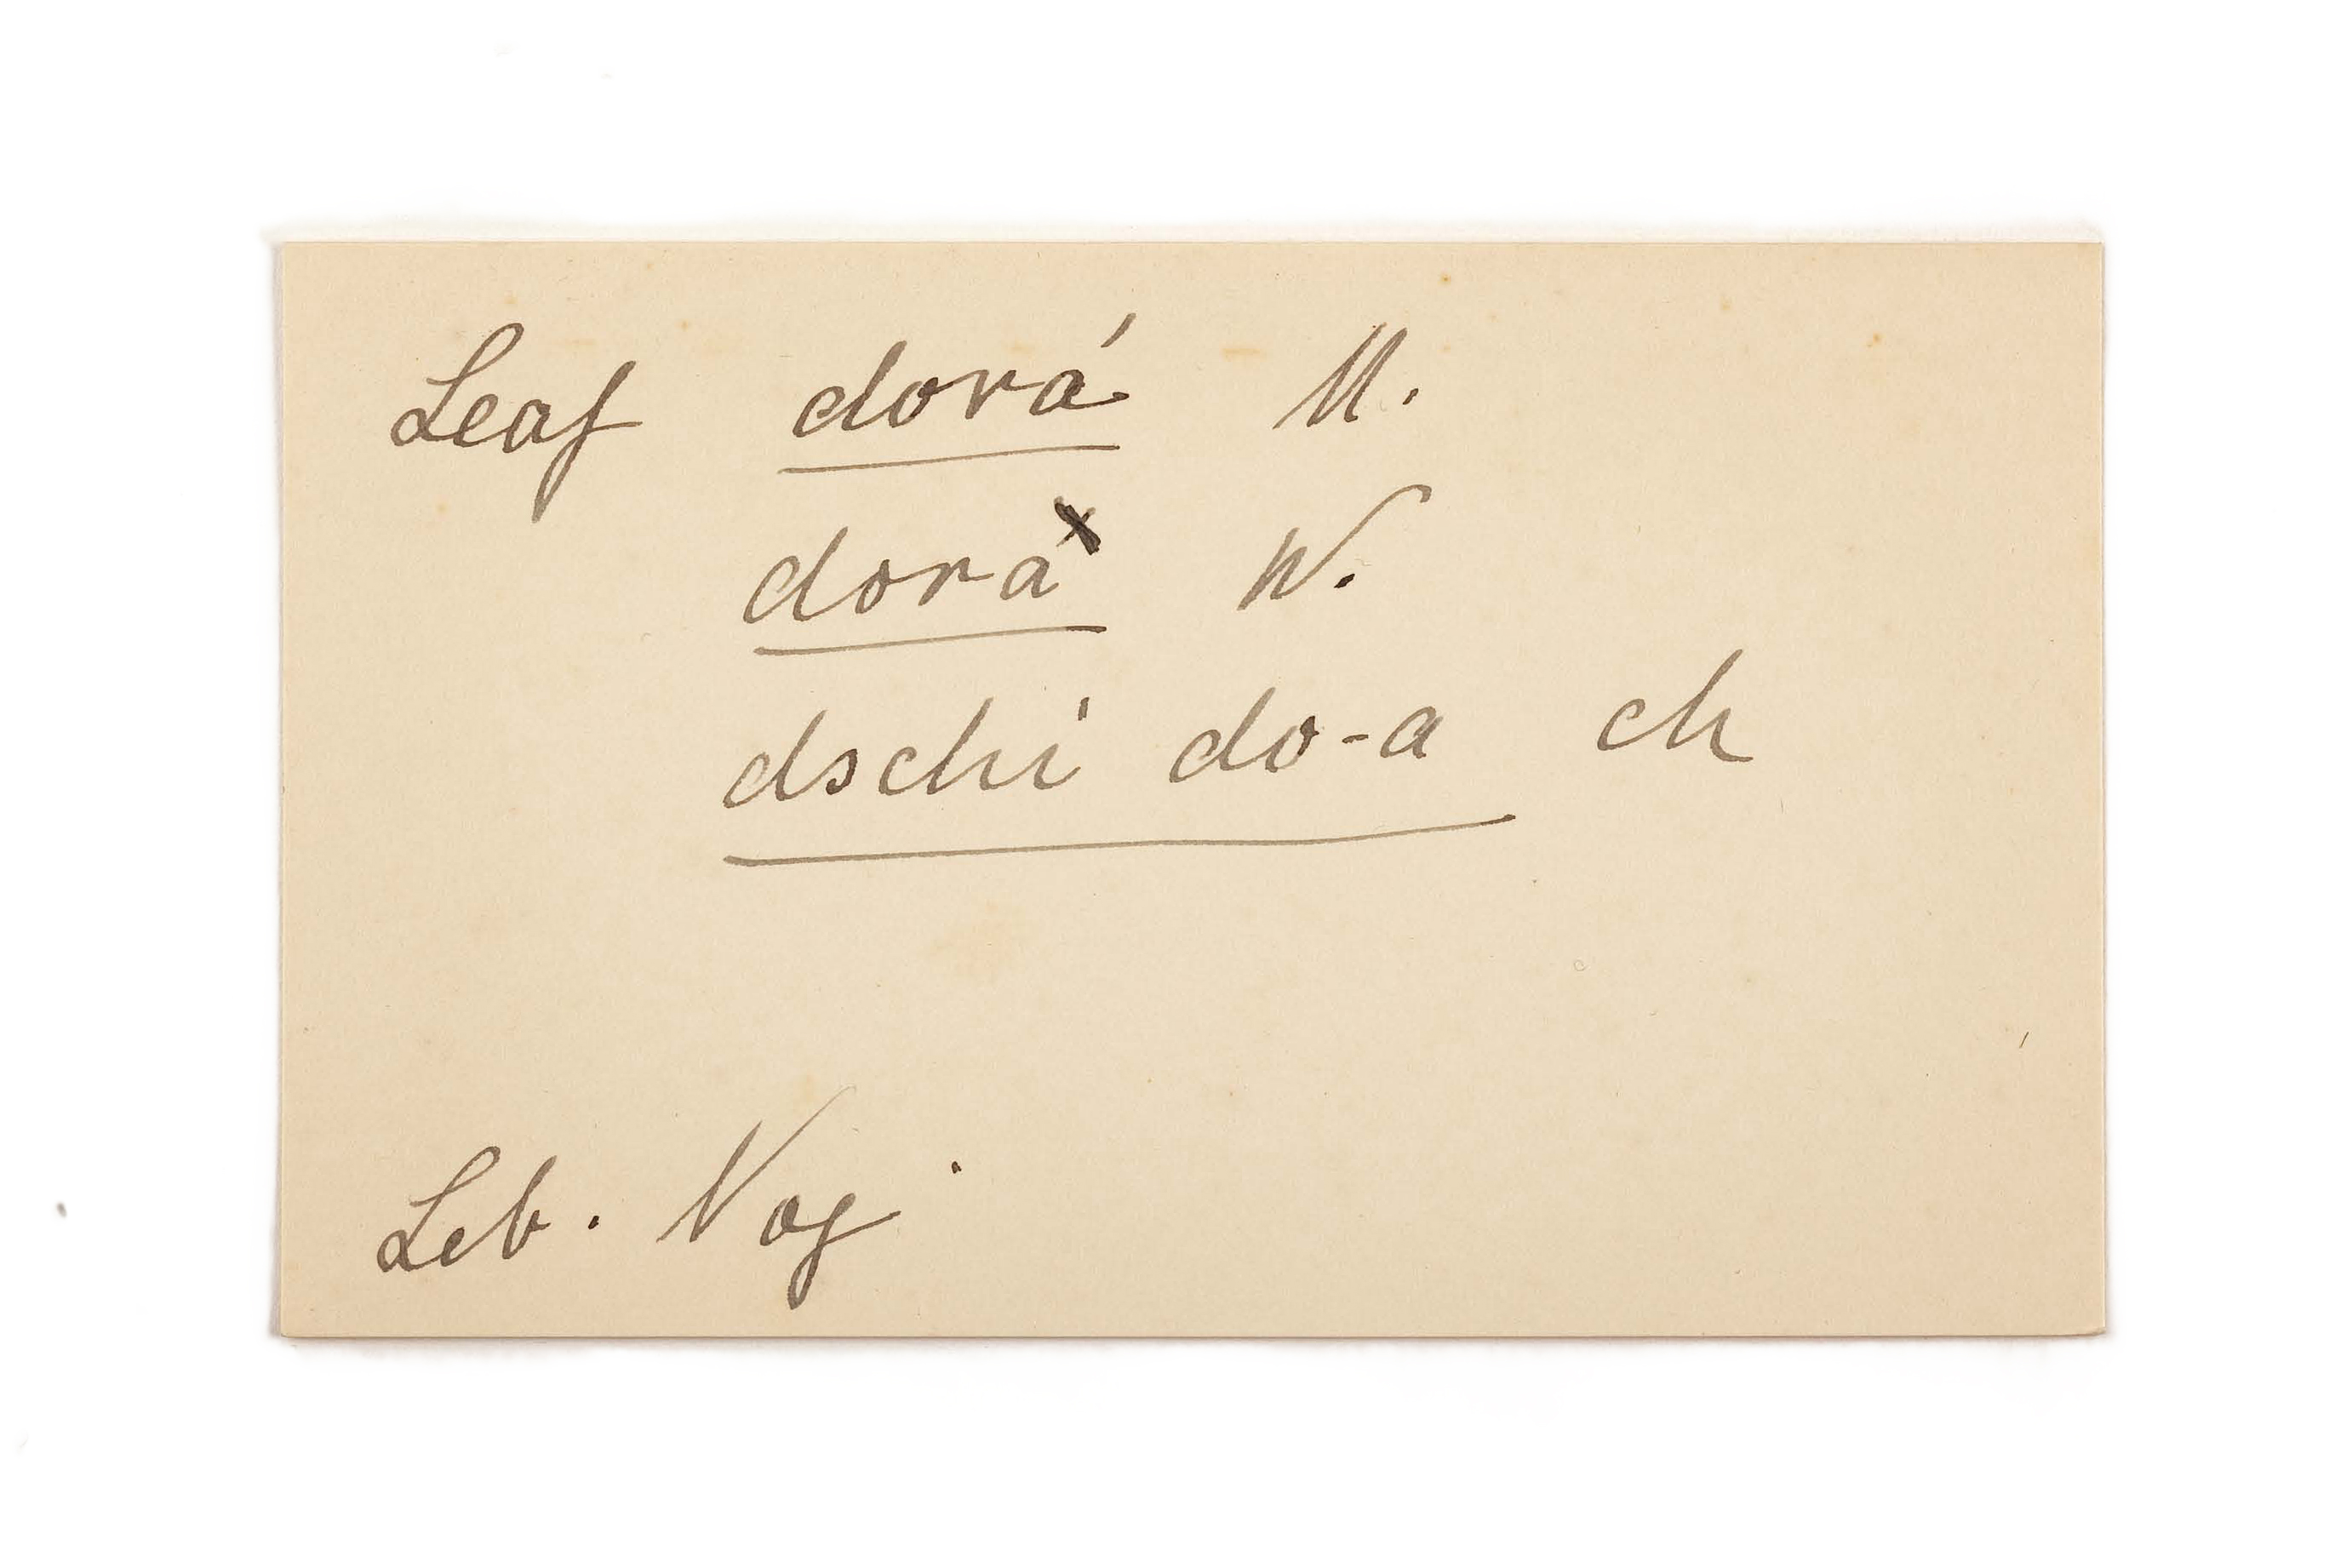 Leaf dorá M.
dorá W.
dschi do-a ch
Leb. Voj